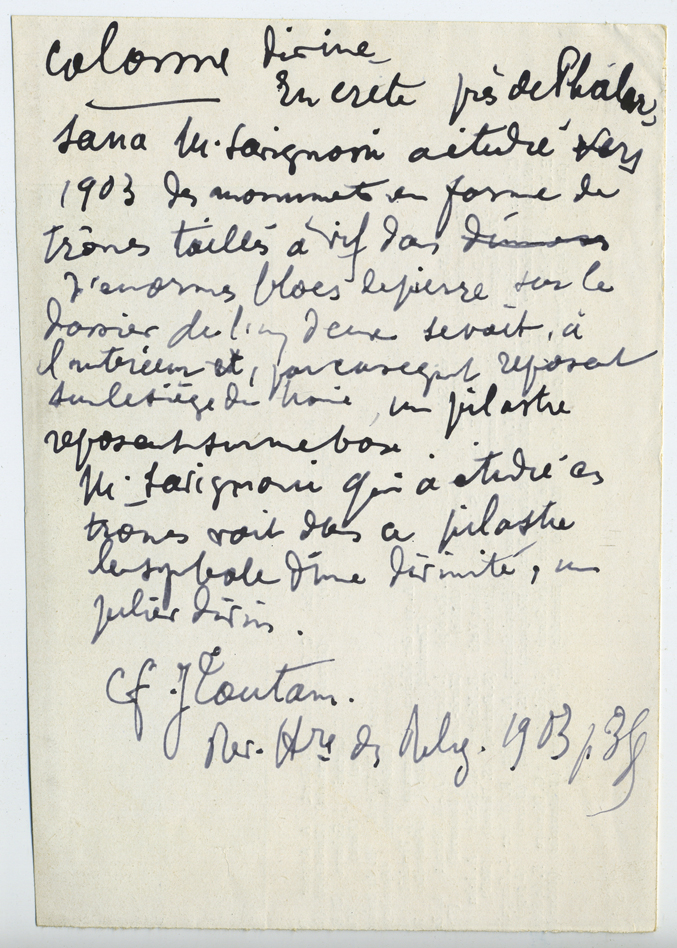 colonne divine
En crète près de Phalar,
sana M. Savignoni a étudié vers
1903 des monuments en forme de
trônes taillés à vif dans
d'énormes blocs de pierre sur le
dossier de l'un d'eux se voit, à
l'intérieur et, par conséquent reposant
sur le siège du trône, un pilastre
reposant sur une base
M. Savignoni qui a étudié ces
trônes voit dans ce pilastre
le symbole d'une divinité, un
pilier divin.
Cf. J Toutain.
Rev. Hre des Relig. 1903 p.